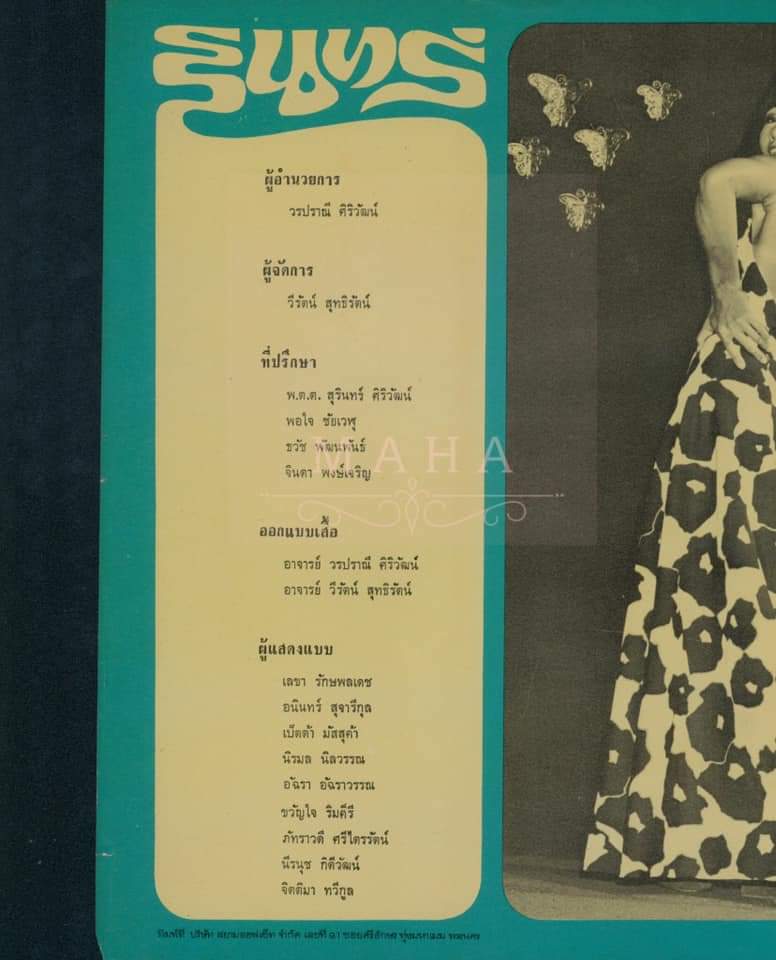 รินทร์
ผู้อำนวยการ
วรปราณี ศิริวัฒน์
ผู้จัดการ
วีรัตน์ สุทธิรัตน์
ที่ปรึกษา
พ.ต.ต. สุรินทร์ ศิริวัฒน์
พอใจ ชัยเวฬุ
ธวัช พัฒนพันธ์
จินดา พงษ์เจริญ
MAHA
ออกแบบเสื้อ
อาจารย์ วรปราณี ศิริวัฒน์
อาจารย์ วีรัตน์ สุทธิรัตน์
ผู้แสดงแบบ
เลขา รักษพลเดช
อนินทร์ สุจารีกุล
เบ็ตต้า มัสสุค้า
นิรมล นิลวรรณ
อัฉรา อัฉราวรรณ
ขวัญใจ ริมคีรี
ภัทราวดี ศรีไตรรัตน์
นีรนุช กิติวัฒน์
จิตติมา ทวีกูล
พิมพ์ที่ บริษัท สยามออฟเซ็ท จำกัด เลขที่